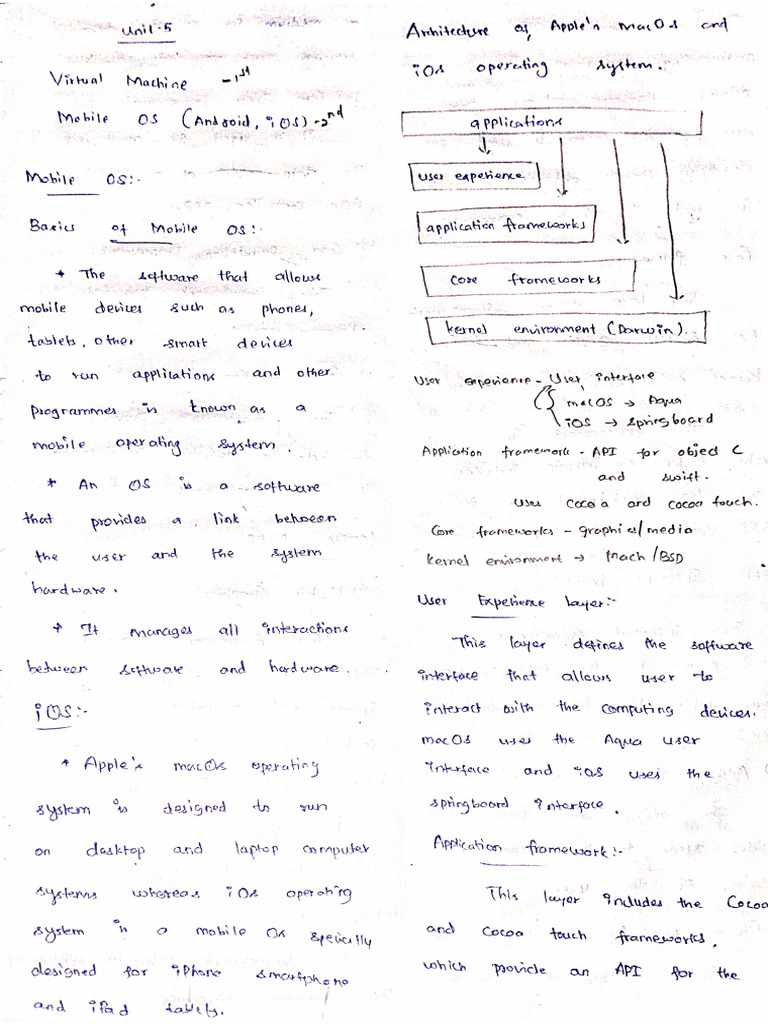 Unit-5
Virtual Machine -1st
Mobile OS (Android, iOS) -2nd
Mobile OS:-
Basics of Mobile OS:-
* The software that allows
mobile devices such as phones,
tablets, other smart devices
to run applilations and other
programmes is known as a
mobile operating system.
* An OS is a software
that provides a link between
the user and the system
hardware.
* It manages all interactions
between software and hardware.
iOS:-
* Apple's macOs operating
system is designed to run
on desktop and laptop computer
systems whereas iOs operating
system is a mobile Os spelically
designed for iPhone smartphone
and iPad tablets.
Architecture of Apple's macOs and
iOs operating system.
applications
user experience
application frameworks
core frameworks
kernel environment (Darwin).
User experience - User interface
macOS → Aqua
iOS → springboard
Application framework - API for object C
and swift.
Uses Cocoa and cocoa touch.
Core frameworks - graphics/media
kernel environment → Mach/BSD
User Experience layer:-
This layer defines the software
interface that allows user to
interact with the computing devices.
macOs uses the Aqua user
interface and iOs uses the
springboard interface.
Application framework:-
This layer includes the Cocoa
and Cocoa touch frameworks,
which provide an API for the